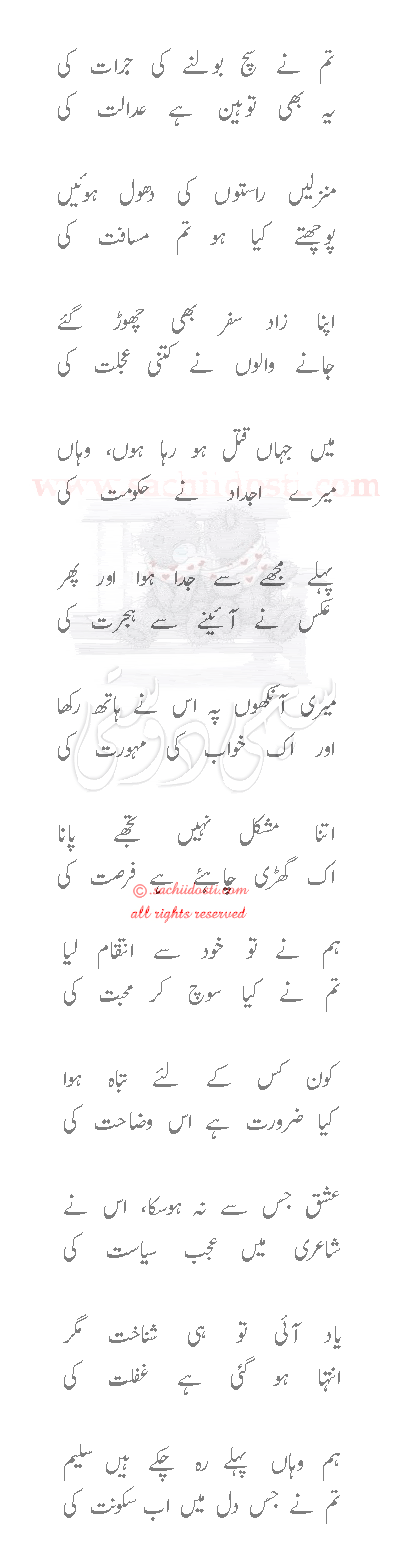 تم نے سچ بولنے کی جرات کی
یہ بھی توہین ہے عدالت کی
منزلیں راستوں کی دھول ہوئیں
پوچھتے کیا ہو تم مسافت کی
اپنا زاد سفر بھی چھوڑ گئے
جانے والوں نے کتنی عجلت کی
میں جہاں قتل ہو رہا ہوں، وہاں
www.sachiidosti.com
میرے اجداد نے حکومت کی
پہلے مجھے سے جدا ہوا اور پھر
عکس نے آئینے سے ہجرت کی
سچی دوستی
میری آنکھوں پہ اس نے ہاتھ رکھا
اور اک خواب کی مہورت کی
اتنا مشکل نہیں تجھے پانا
اک گھڑی چاہئے ہے فرصت کی
© sachiidosti.com
all rights reserved
ہم نے تو خود سے انتقام لیا
تم نے کیا سوچ کر محبت کی
کون کس کے لئے تباہ ہوا
کیا ضرورت ہے اس وضاحت کی
عشق جس سے نہ ہوسکا، اس نے
شاعری میں عجب سیاست کی
یاد آئی تو ہی شناخت مگر
انتہا ہو گئی ہے غفلت کی
ہم وہاں پہلے رہ چکے ہیں سلیم
تم نے جس دل میں اب سکونت کی